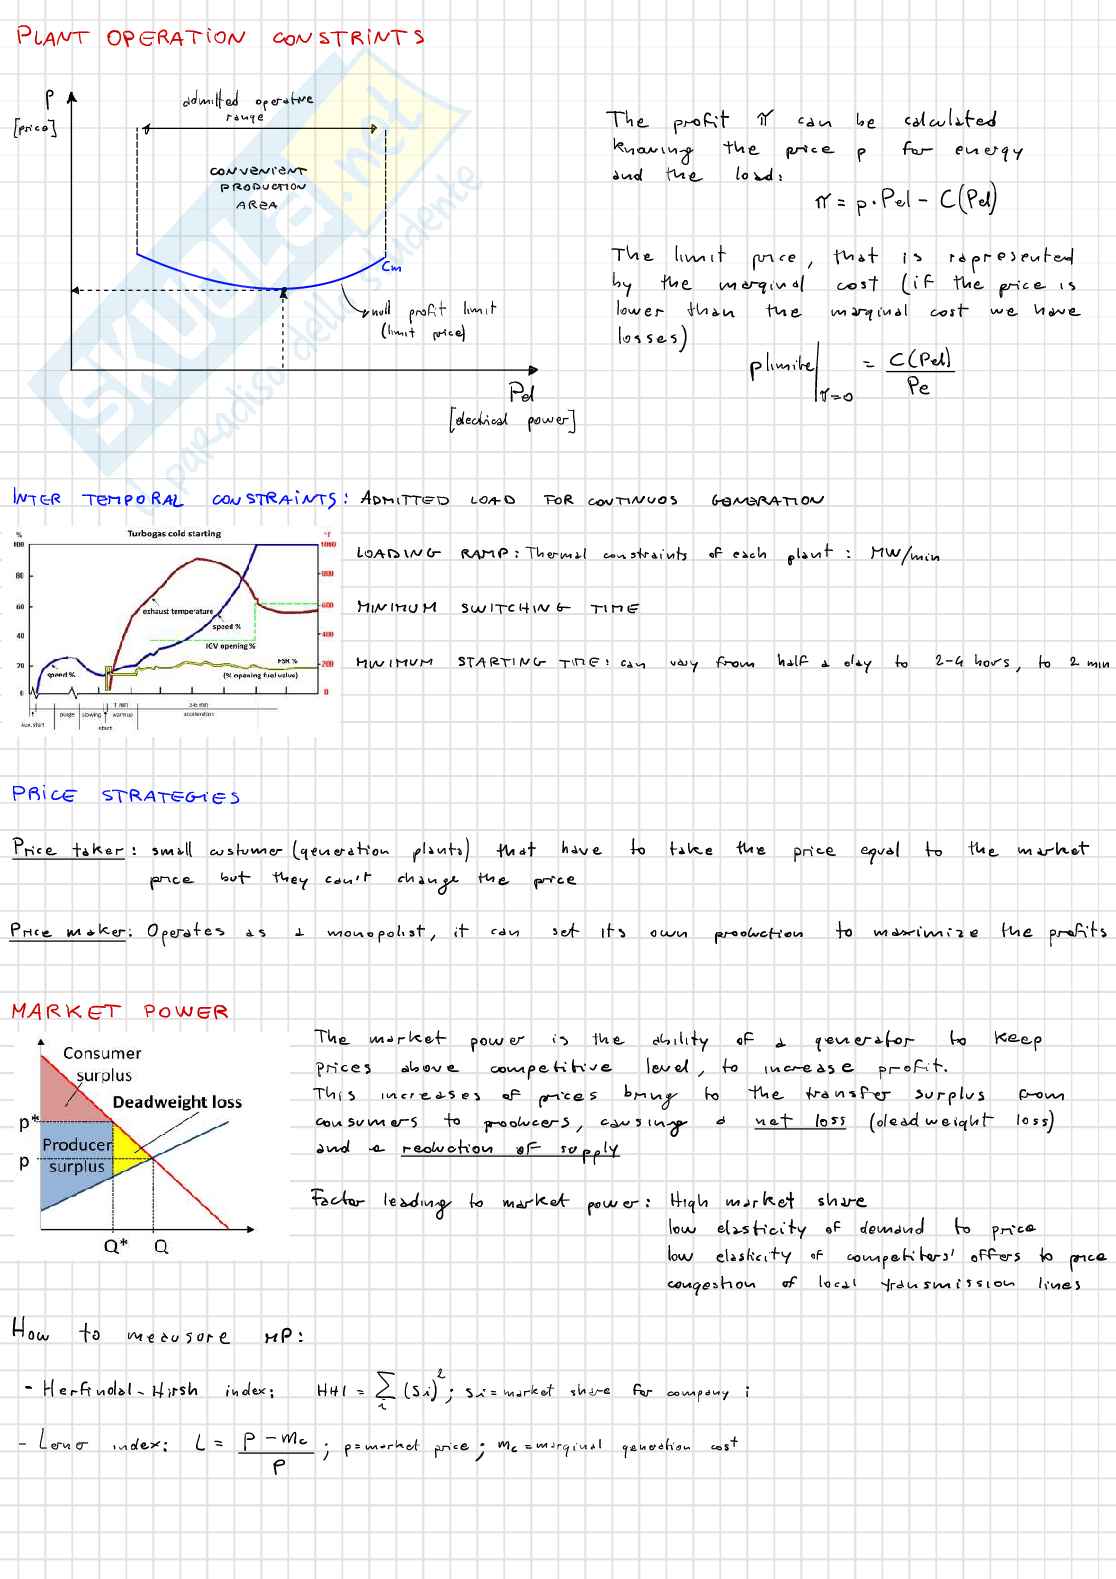 PLANT OPERATION CONSTRINTS
P
[price]
admitted operative
range
CONVENIENT
PRODUCTION
AREA
Cm
null profit limit
(limit price)
Pel
[electrical power]
The profit π can be calculated
knowing the price p for energy
and the load:
π = p · Pel - C(Pel)
The limit price, that is rapresented
by the marginal cost (if the price is
lower than the marginal cost we have
losses)
plimite|π=0 = C(Pel)/Pe
INTER TEMPORAL CONSTRAINTS: ADMITTED LOAD FOR CONTINUOS GENERATION
Turbogas cold starting
%
100
80
60
40
20
0
°F
1000
800
600
400
200
0
exhaust temperature
speed %
IGV opening %
FSR %
(% opening fuel valve)
speed %
1 min
Aux. start
purge
slowing
warmup
acceleration
start
LOADING RAMP: Thermal constraints of each plant: MW/min
MINIMUM SWITCHING TIME
MINIMUM STARTING TIME: can vary from half a day to 2-4 hors, to 2 min
PRICE STRATEGIES
Price taker: small custumer (generation plants) that have to take the price equal to the market
price but they can't change the price
Price maker: Operates as a monopolist, it can set its own production to maximize the profits
MARKET POWER
Consumer
surplus
Deadweight loss
p*
Producer
surplus
p
Q*
Q
The market power is the ability of a generator to keep
prices above competitive level, to increase profit.
This increases of prices bring to the transfer surplus from
consumers to producers, causing a net loss (deadweight loss)
and a reduction of supply
Factor leading to market power: High market share
low elasticity of demand to price
low elasticity of competitors' offers to price
congestion of local transmission lines
How to measure MP:
- Herfindal-Hirsh index: HHI = ∑i (Si)²; Si = market share for company i
- Lerno index: L = (P - Mc)/P; p = market price; mc = marginal generation cost
SKUOLA.net
il paradiso dello studente